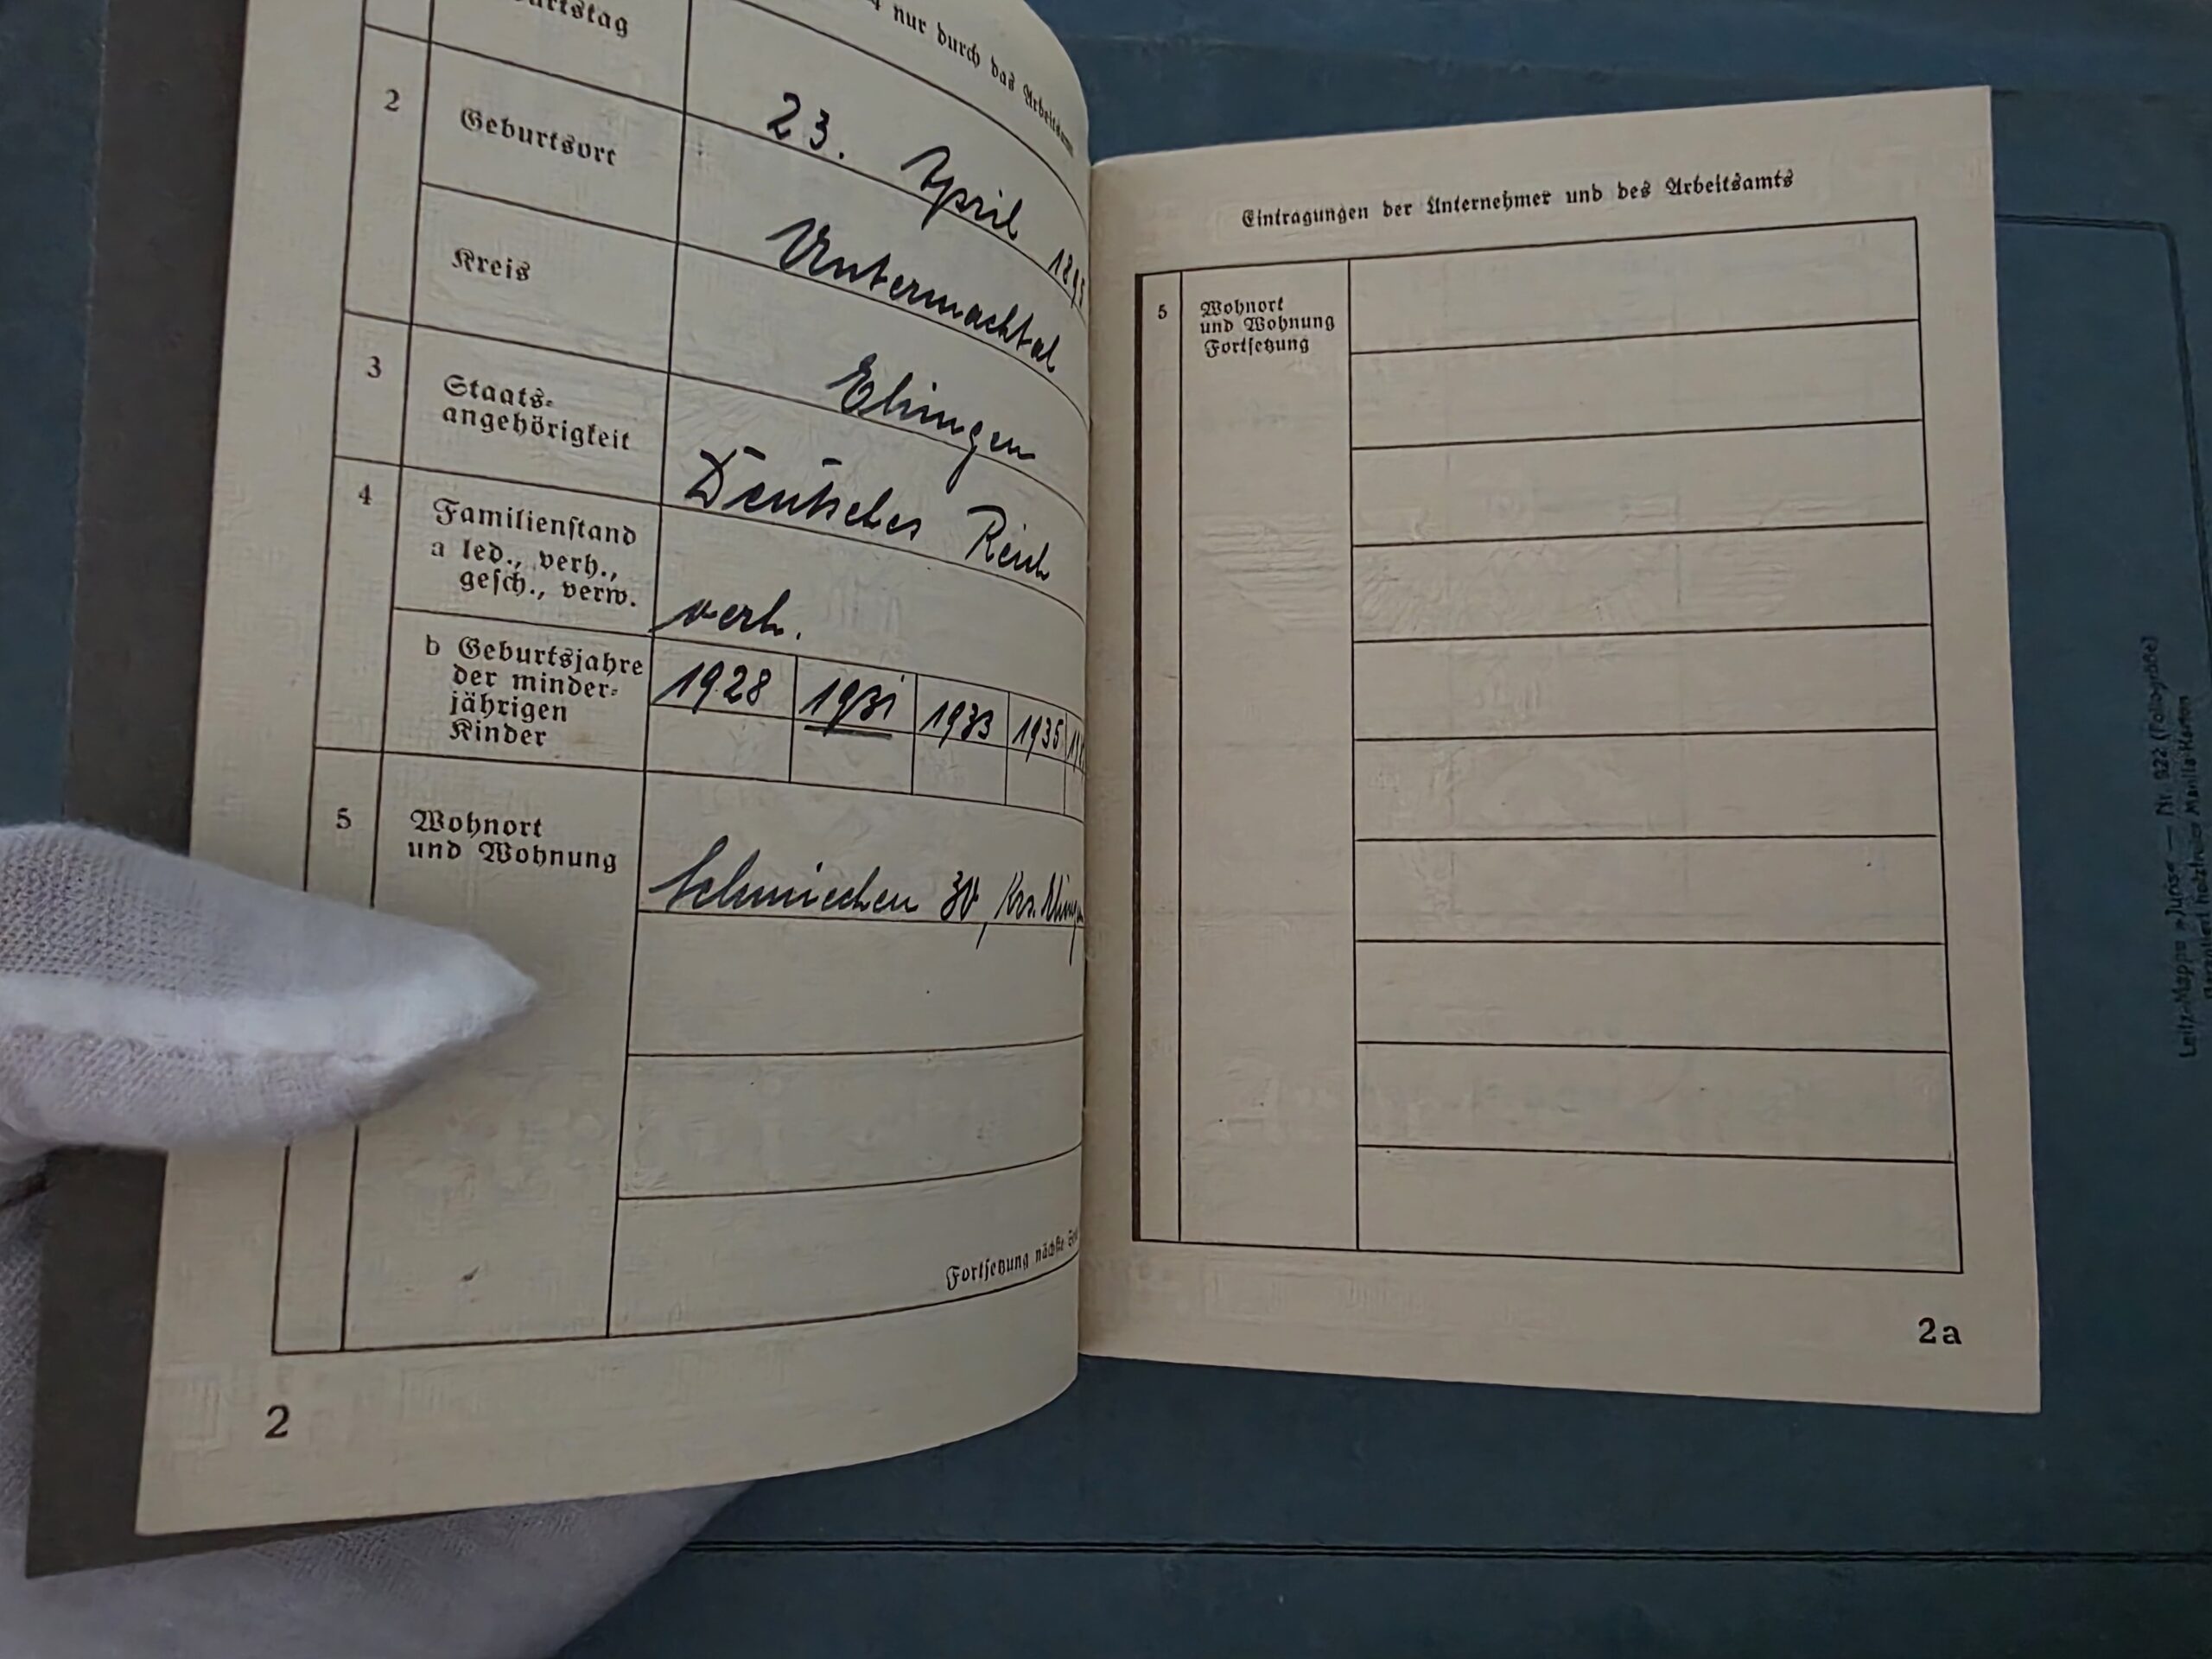 nur durch das Arbeitsamt
23. April
2 Geburtsort Untermachtal
Kreis Ehingen
3 Staats=
angehörigkeit Deutsches Reich
4 Familienstand
a led., verh.,
gesch., verw. verh.
b Geburtsjahre
der minder=
jährigen
Kinder
1928 1931 1933 1935
5 Wohnort
und Wohnung
Schmiechen Krs. Ehingen
Fortsetzung nächste
2
Eintragungen der Unternehmer und des Arbeitsamts
5 Wohnort
und Wohnung
Fortsetzung
2a
Leitz-Mappe »Junse« — Nr. 922 (Foliogröße)